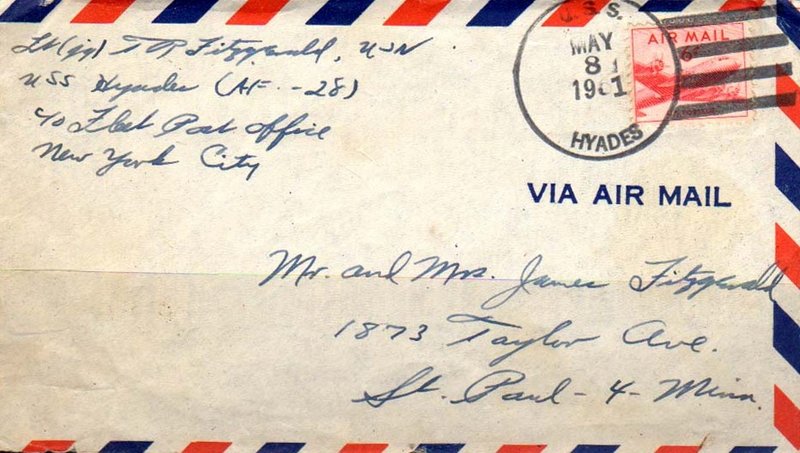 Lt(jg) T R Fitzgerald, USN
USS Hyades (AF-28)
c/o Fleet Post Office
New York City
U.S.S.
MAY
8
19 1
HYADES
AIR MAIL
6¢
VIA AIR MAIL
Mr. and Mrs. James Fitzgerald
1873 Taylor Ave.
St. Paul-4-Minn.